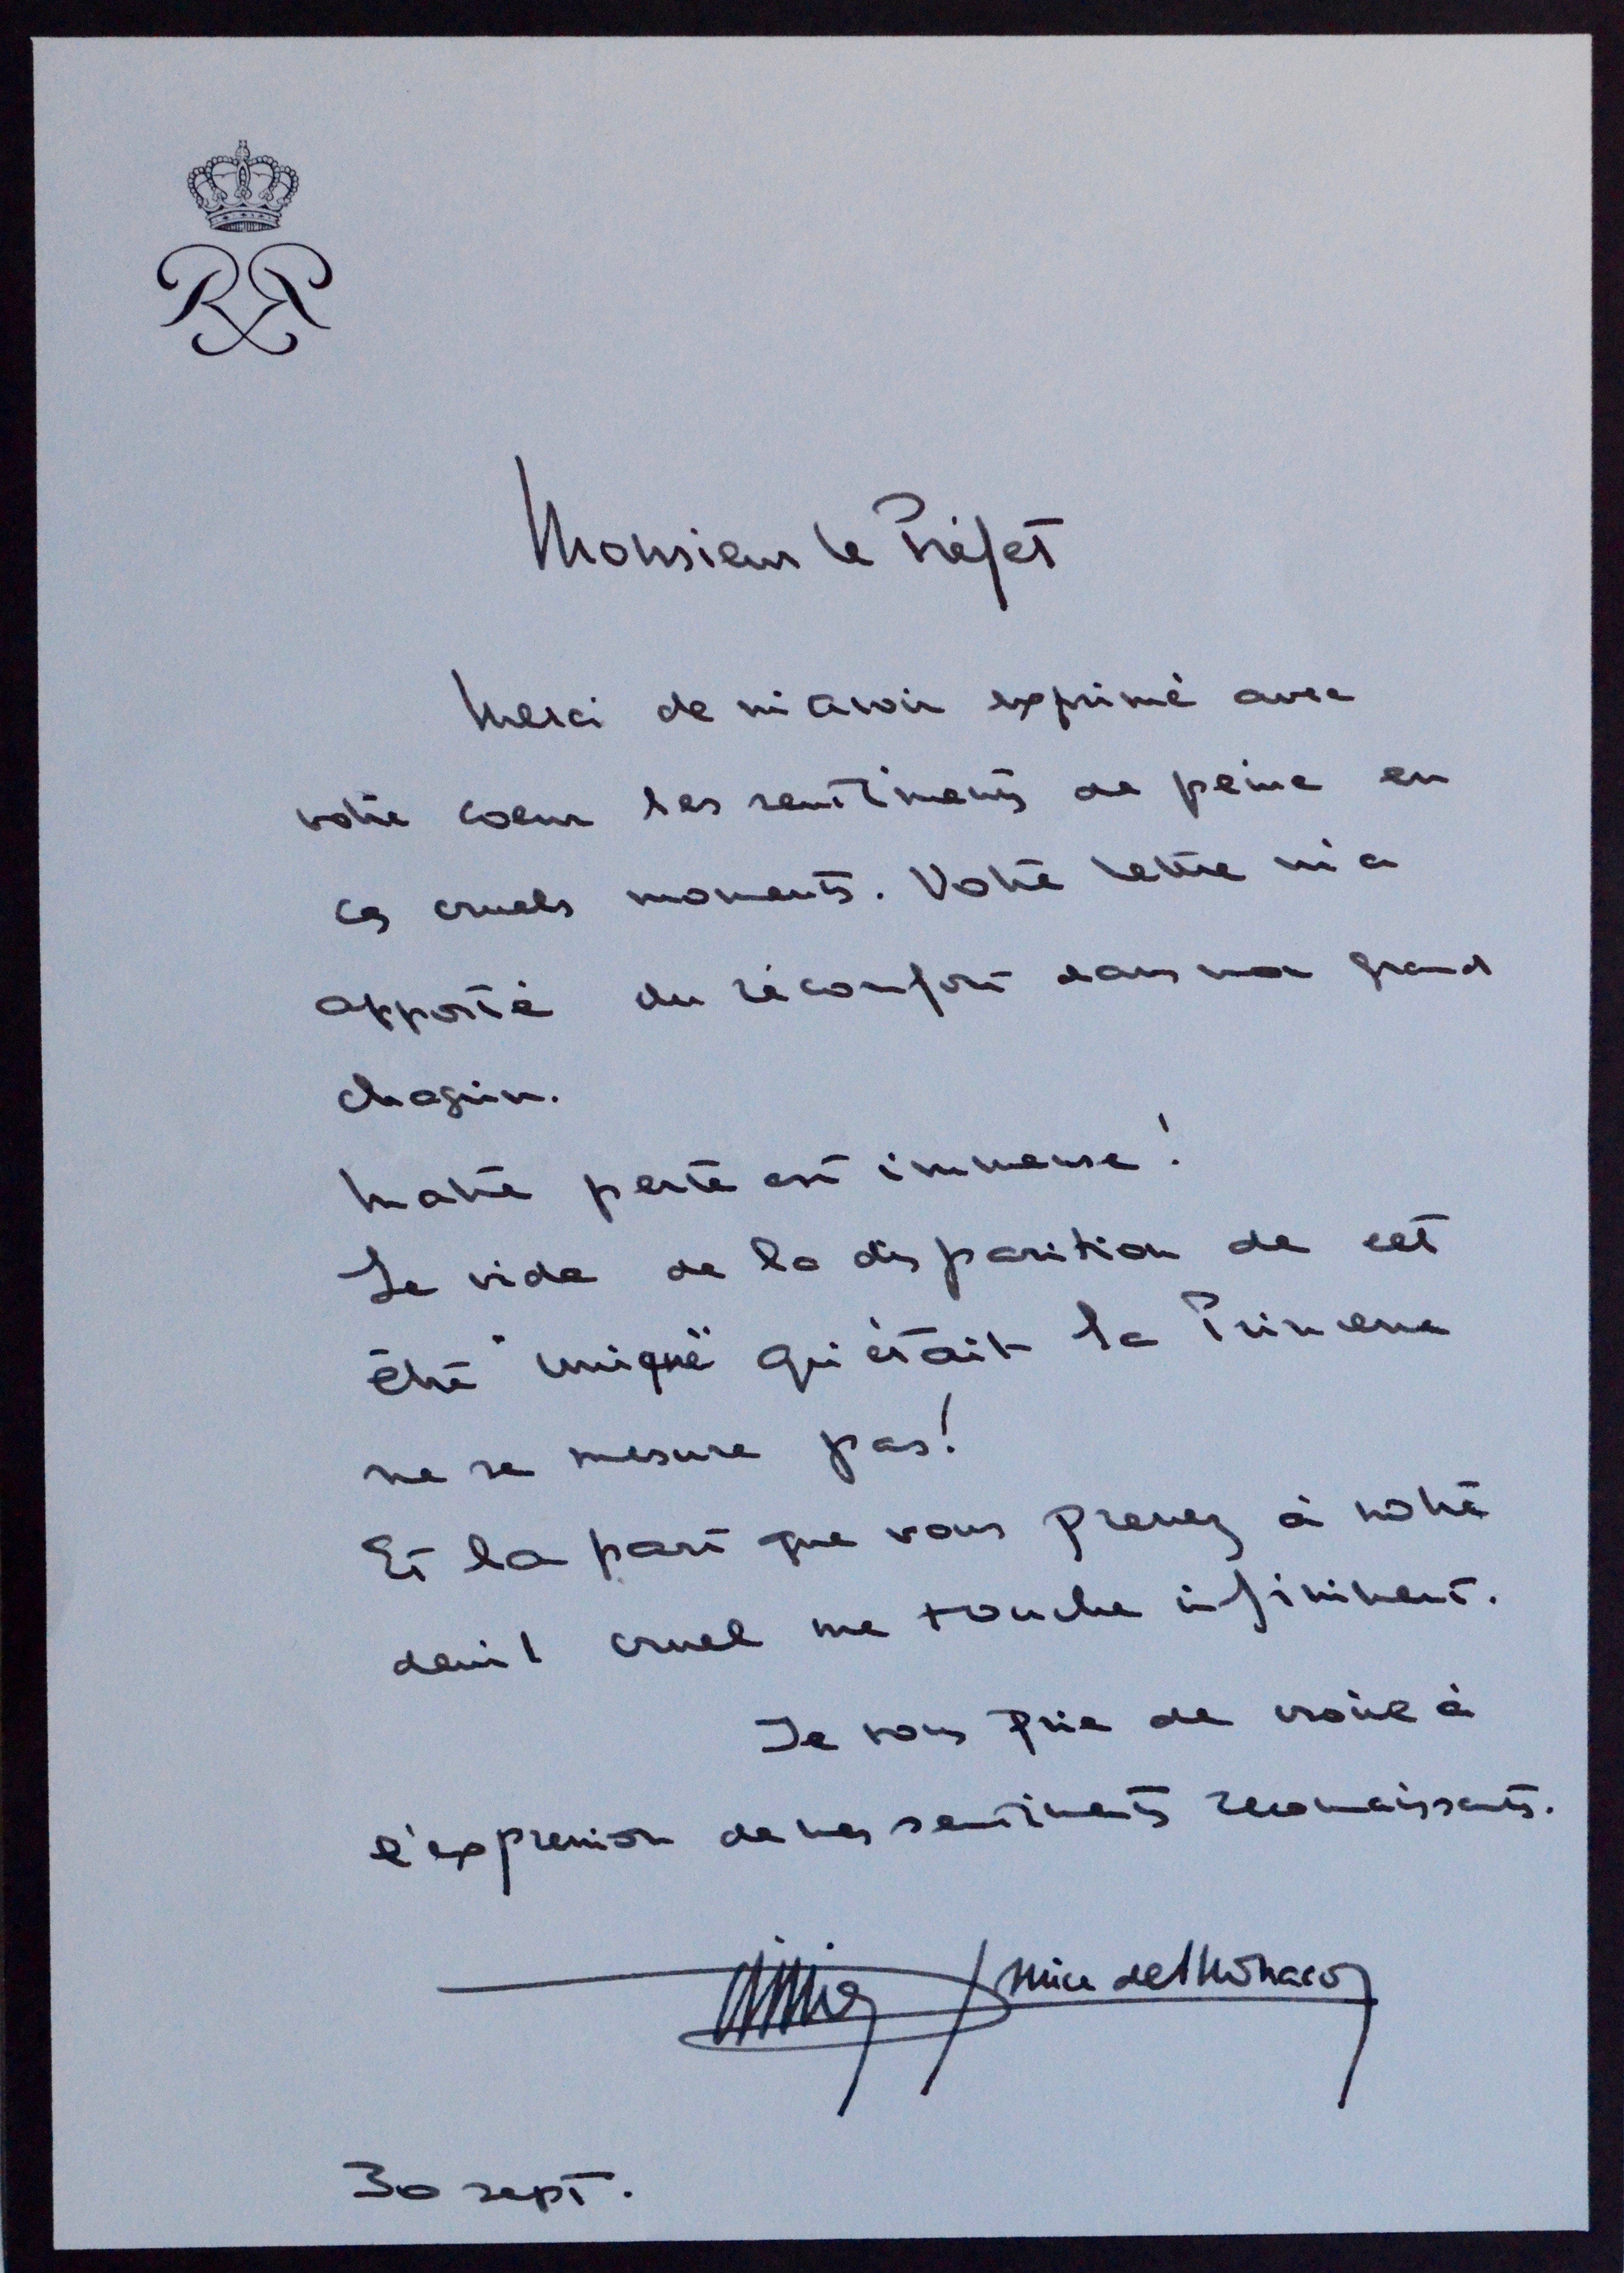 Monsieur le Préfet
Merci de m'avoir exprimé avec
votre coeur les sentiments de peine en
ces cruels moments. Votre lettre m'a
apporté du réconfort dans mon grand
chagrin.
Notre perte est immense!
Le vide de la disparition de cet
être "unique" qu'était la Princesse
ne se mesure pas!
Et la part que vous prenez à notre
deuil cruel me touche infiniment.
Je vous prie de croire à
l'expression de mes sentiments reconnaissants.
Prince de Monaco
30 sept.